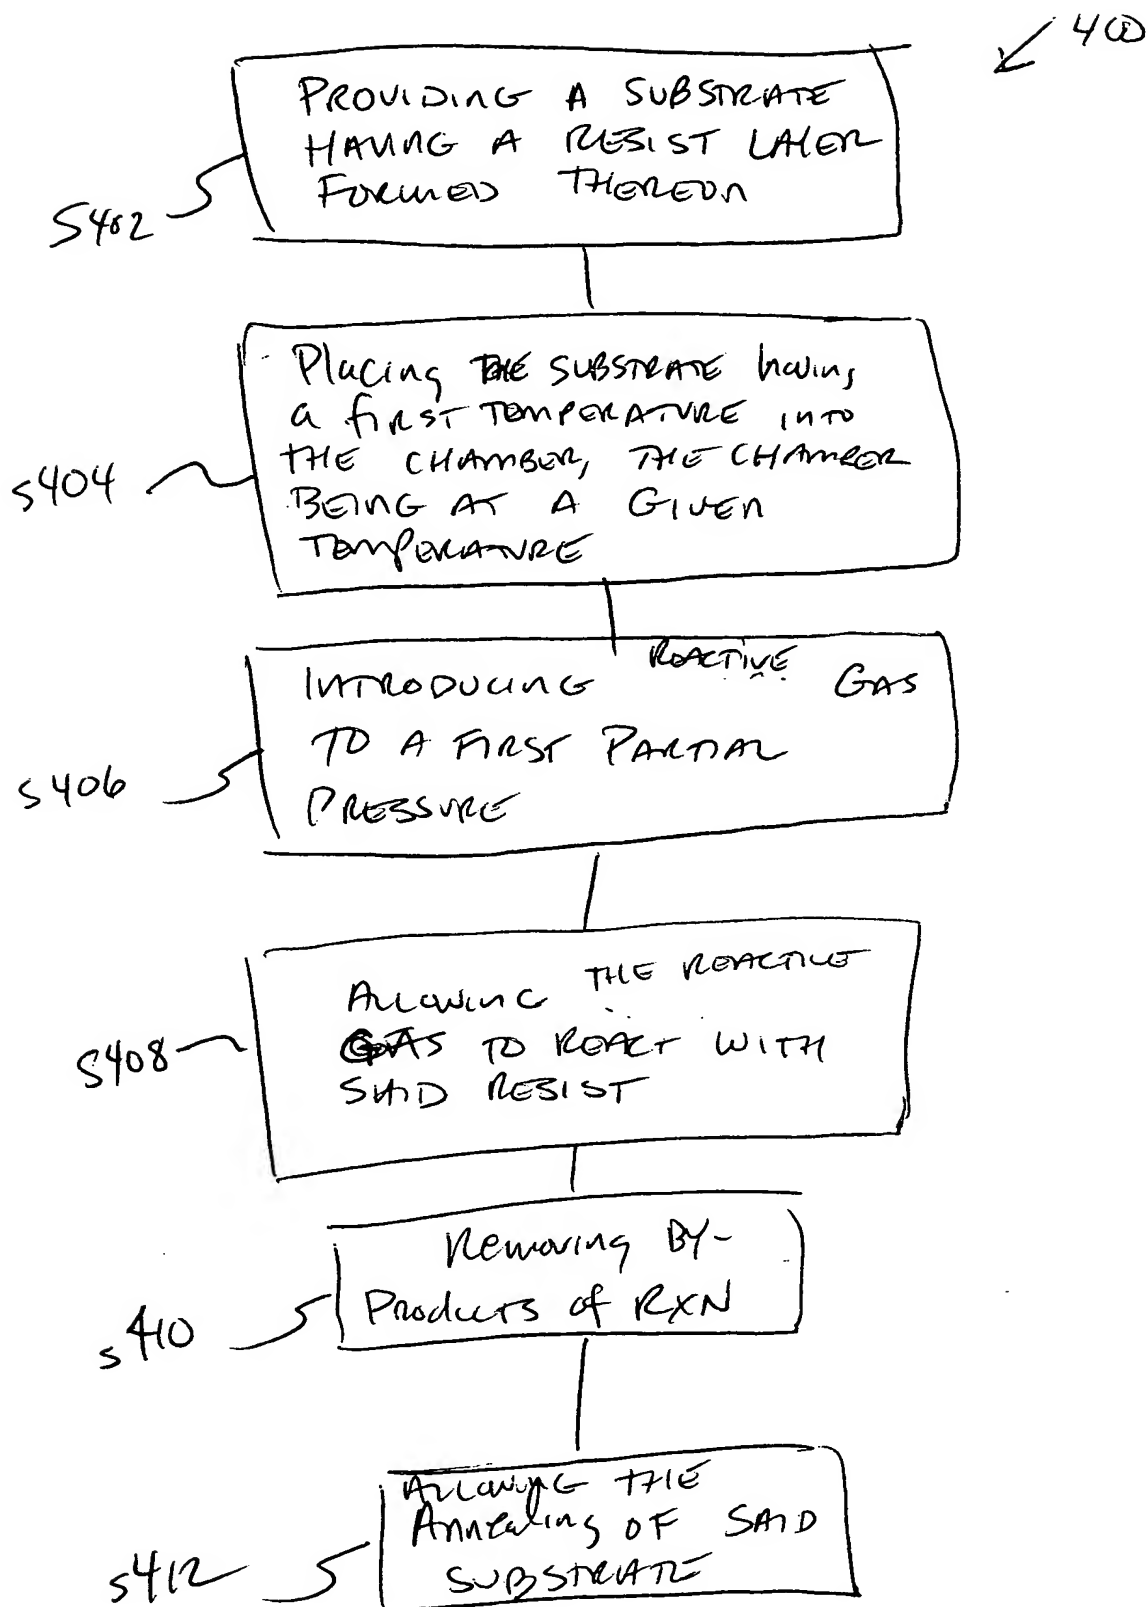 400
PROVIDING A SUBSTRATE
HAVING A RESIST LAYER
FORMED THEREON
S402
Placing THE SUBSTRATE having
a first TEMPERATURE INTO
THE CHAMBER, THE CHAMBER
BEING AT A GIVEN
TEMPERATURE
S404
INTRODUCING REACTIVE GAS
TO A FIRST PARTIAL
PRESSURE
S406
ALLOWING THE REACTIVE
GAS TO REACT WITH
SAID RESIST
S408
Removing BY-
Products of RXN
S410
ALLOWING THE
Annealing OF SAID
SUBSTRATE
S412